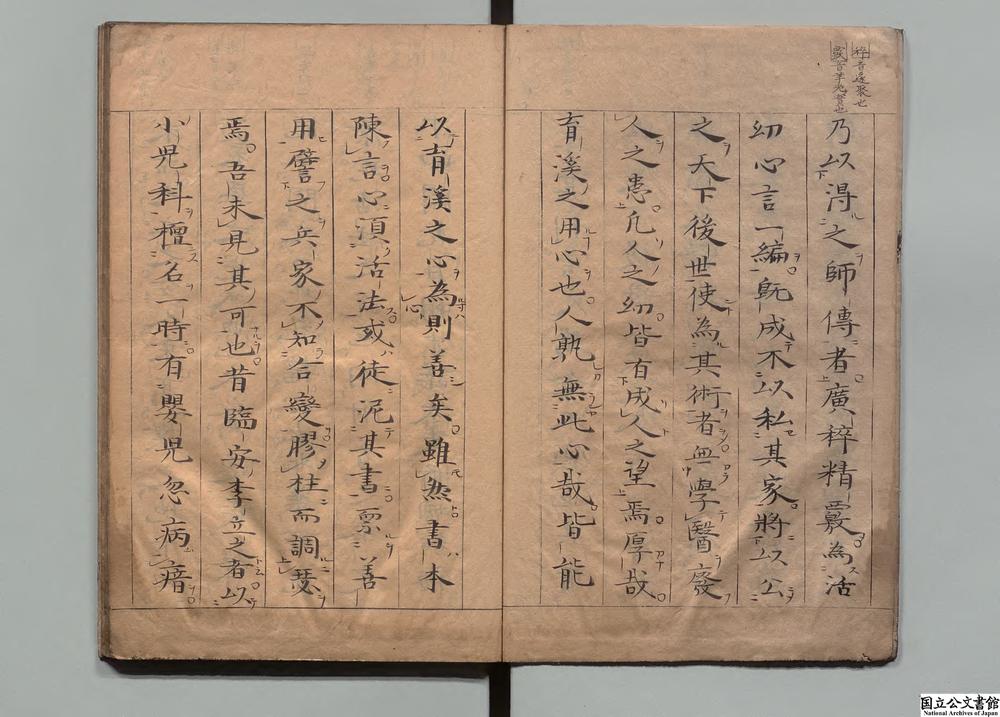 稡音遂聚也
覈音羊光實也
乃以得之師傳者廣稡精覈為活
幼心言一編既成不以私其家將以公
之天下後世使為其術者無學醫廢
人之患凡人之幼皆有成人之望焉厚哉
育溪之用心也人孰無此心哉皆能
以育溪之心為心則善矣雖然書本
陳言心須活法或徒泥其書而不善
用譬之兵家不知合變膠柱而調瑟
焉吾未見其可也昔臨安李立之者以
小児科擅名一時有嬰児忽病瘖
国立公文書館
National Archives of Japan